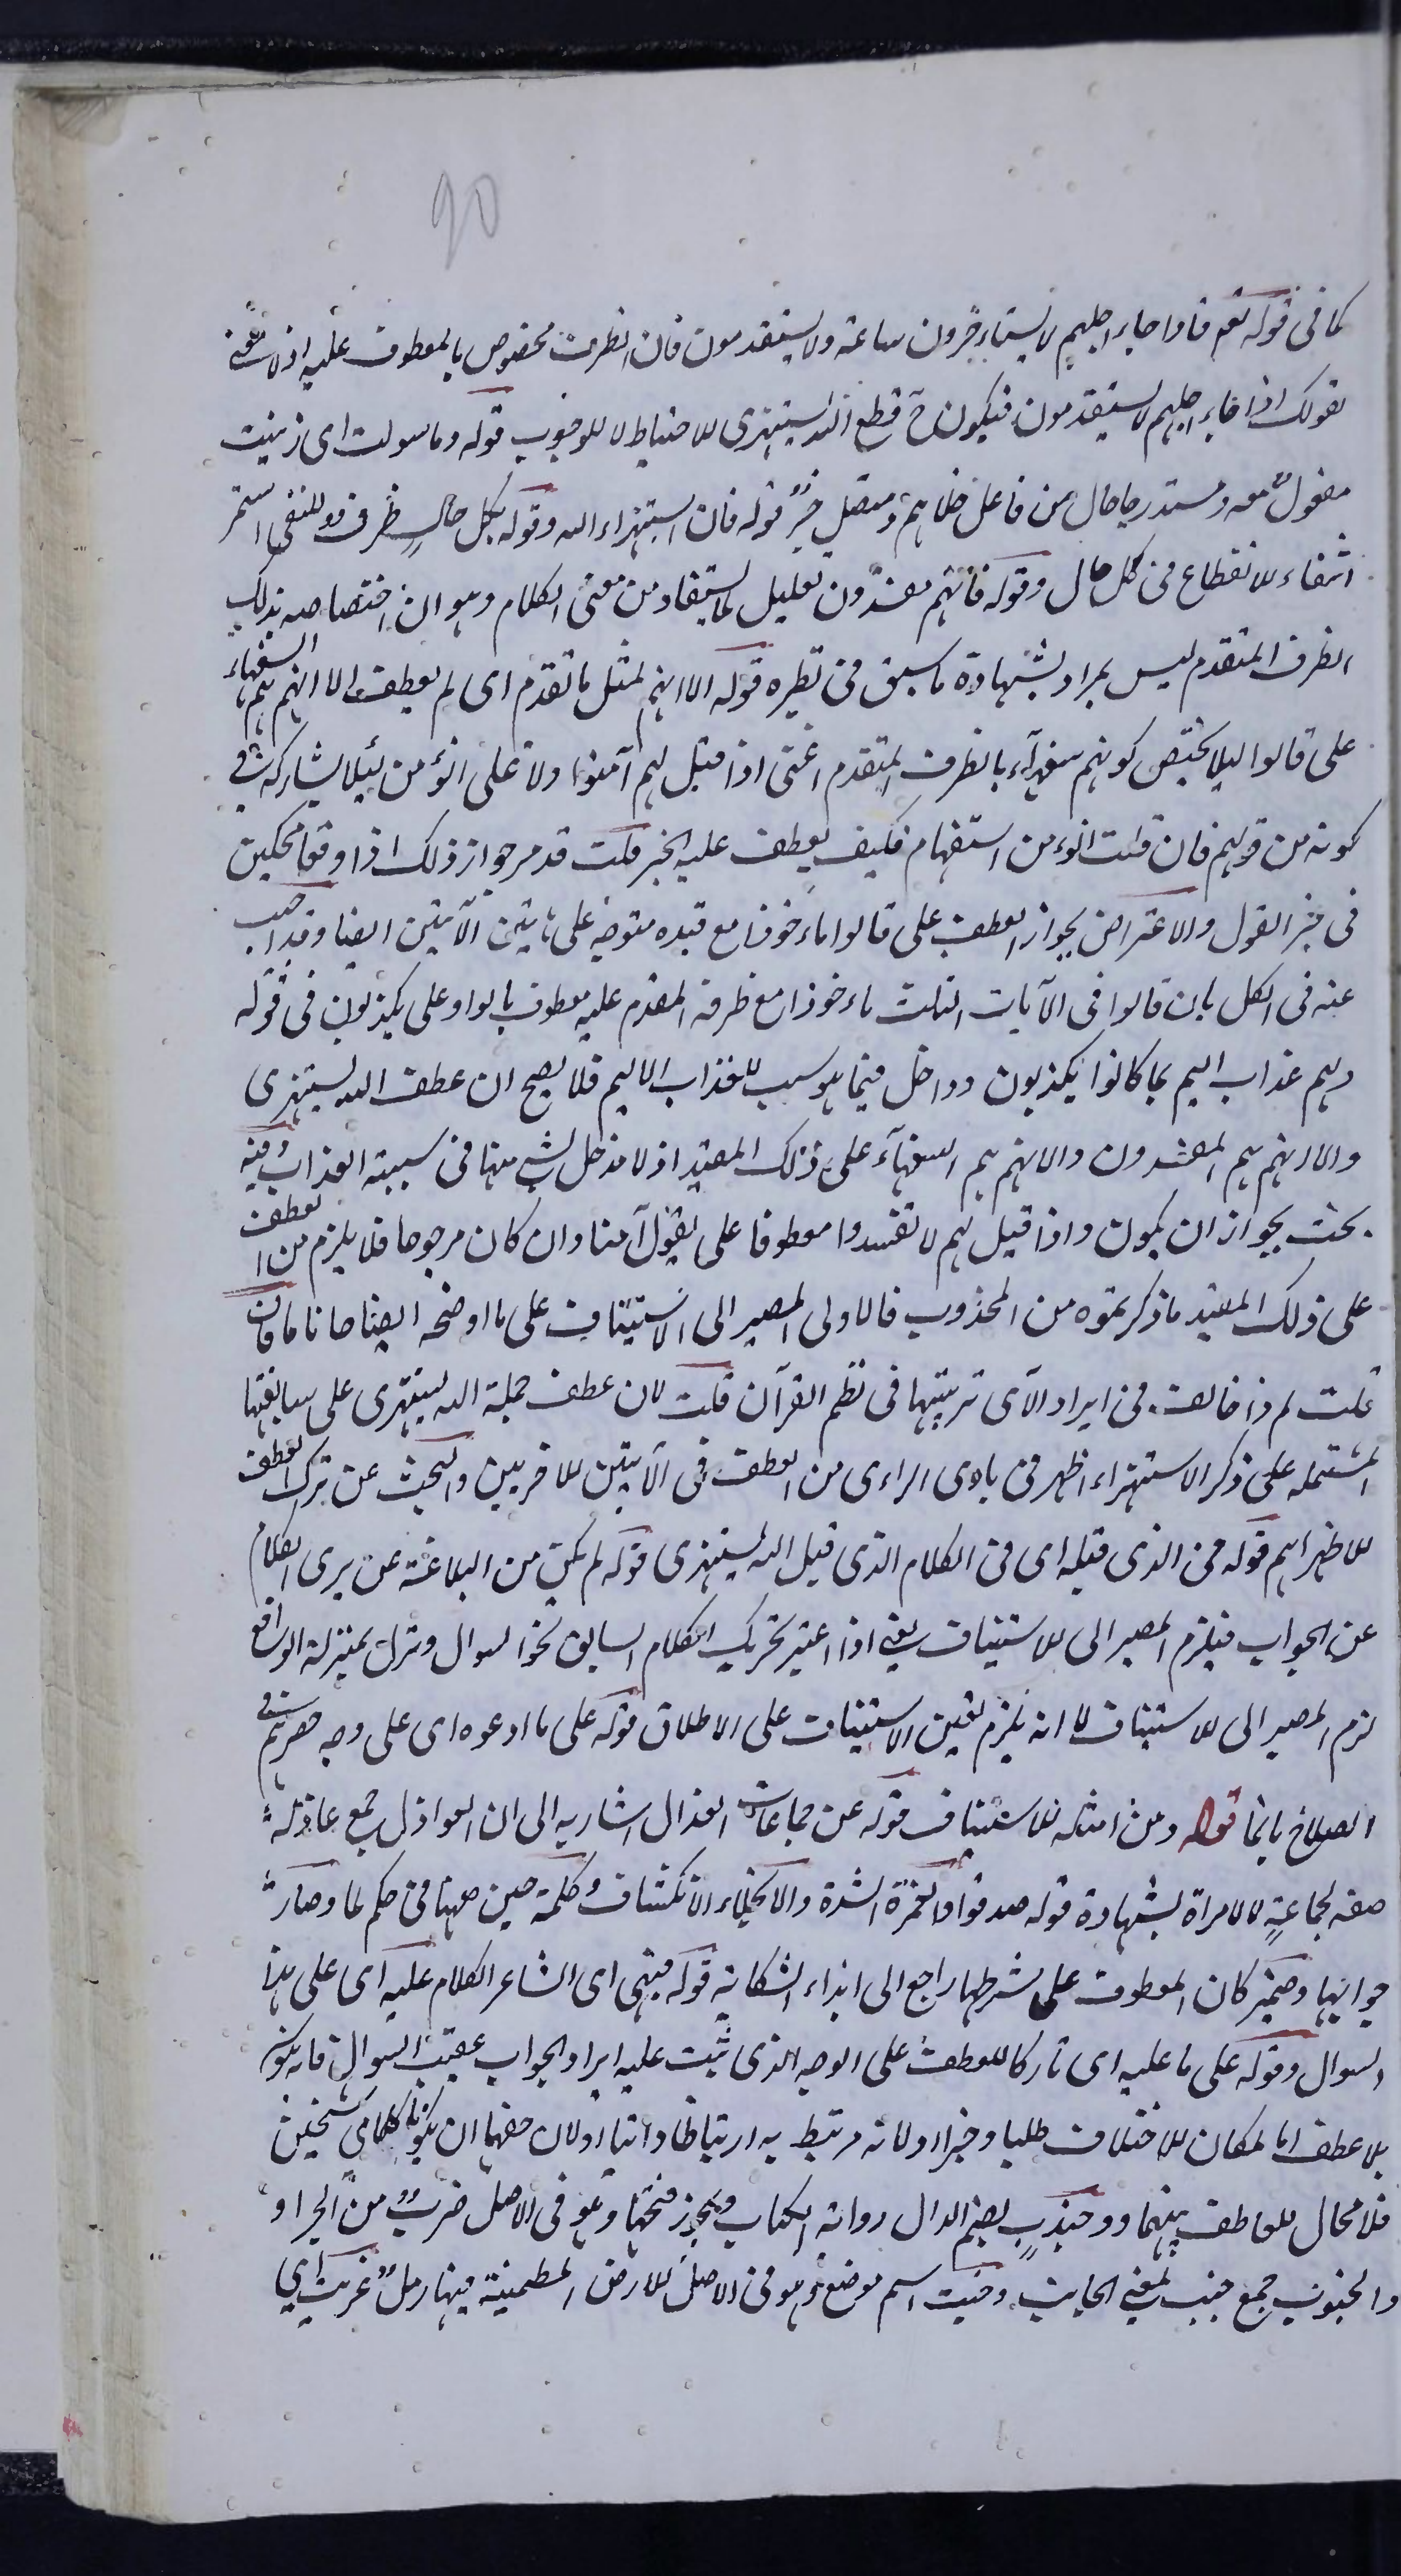 90
كما فى قوله تعم فاذا جاء اجلهم لا يستاءخرون ساعة ولا يستقدمون فان الظرف مخصوص بالمعطوف عليه اذ لا معنى
لقولك اذا جاء اجلهم لا يستقدمون فيكون ح قطع الله يستهزى للاحتياط لا للوجوب قوله وما سولت اى زينت
مفعول معه ومستدرجا حال من فاعل خلاهم ومتصل خبر قوله فان استهزاء الله وقوله بكل حال ظرف للنفى استمر
انتفاء للانقطاع فى كل حال وقوله فانهم مفسدون تعليل لما يستفاد من معنى الكلام وهو ان اختصاصه بذلك
الظرف المتقدم ليس بمراد بشهادة ما سبق فى نظيره قوله الا انهم لمثل ما تقدم اى لم يعطف الا انهم هم السفهاء
على قالوا ليلا يختص كونهم سفهآء بالظرف المتقدم اعنى اذا قيل لهم آمنوا ولا على انؤمن ليلا يشاركه فى
كونه من قولهم فان قلت انؤمن استفهام فكيف يعطف عليه الخبر قلت قد مر جواز ذلك اذا وقعا محكيين
فى حيز القول والاعتراض بجواز العطف على قالوا ماءخوذا مع قيده متوجه على هاتين الآيتين ايضا وقد اجيب
عنه فى الكل بان قالوا فى الآيات الثلث ماءخوذا مع ظرفه المقدم عليه معطوف بالواو على يكذبون فى قوله
ولهم عذاب اليم بما كانوا يكذبون وداخل فيما هو سبب للعذاب الاليم فلا يصح ان عطف الله يستهزى
والا انهم هم المفسدون والا انهم هم السفهآء على ذلك المقيد اذ لا مدخل لشى منها فى سببية العذاب وفيه
بحث بجواز ان يكون واذا قيل لهم لا تفسدوا معطوفا على يقول آمنا وان كان مرجوحا فلا يلزم من العطف
على ذلك المقيد ما ذكرتموه من المحذوب فالاولى المصير الى الاستيناف على ما اوضحه ايضا حانا ما فان
قلت لم ذا خالف فى ايراد الآى ترتيبها فى نظم القرآن قلت لان عطف جملة الله يستهزى على سابقتها
المشتمله على ذكر الاستهزاء اظهر فى بادى الراءى من العطف فى الآيتين الاخريين والبحث عن ترك العطف
للاظهر اهم قوله فى الذى قبله اى فى الكلام الذى قبل الله يستهزى قوله لم يكن من البلاغة عن يرى الكلام
عن الجواب فيلزم المصير الى الاستيناف يعنى اذا اعتبر تحريك الكلام السابق نحو السوال ونزل بمنزلة الواقع
لزم المصير الى الاستيناف لا انه يلزم تعين الاستيناف على الاطلاق قوله على ما ادعوه اى على وجه حصرهم فى
الصلاح بانما قوله ومن امثله للاستيناف قوله عن جماعات العذال اشار به الى ان العواذل جمع عاذلة
صفة لجماعةٍ لا لامراة بشهادة قوله صدقوا والغمرة الشدة والانجلاء الانكشاف وكلمة حين ههنا فى حكم لما وصارت
جوابها وضمير كان المعطوف على شرطها راجع الى ابداء الشكايه قوله مبنى اى الشاعر الكلام عليه اى على هذا
السوال وقوله على ما عليه اى تاركا للعطف على الوجه الذى ثبت عليه ايراد الجواب عقيب السوال فانه يكون
بلا عطف اما لمكان الاختلاف طلبا وخبرا او لانه مرتبط به ارتباطا ذاتيا او لان حقهما ان يكونا كلامى شخصين
فلا مجال للعاطف بينهما وجندبٍ بضم الدال رواية الكتاب ويجوز فتحها وهو فى الاصل ضرب من الجراد
والجنوب جمع جنب بمعنى الجانب وخبت اسم موضع وهو فى الاصل للارض المطمئنة فيها رمل عريت اى